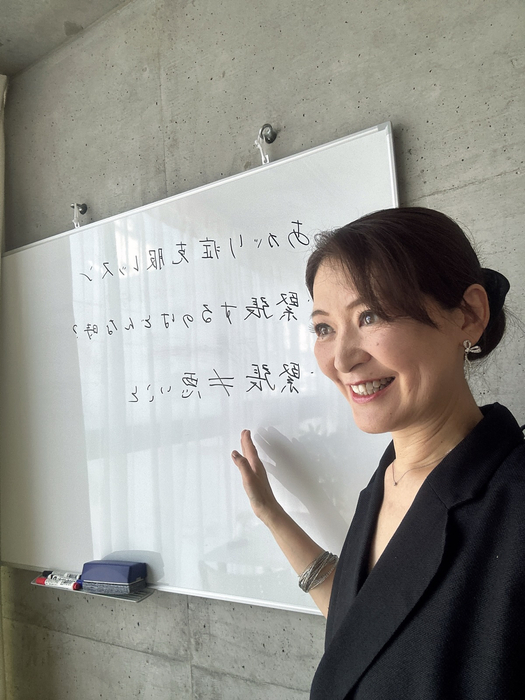 あがり症克服レッスン
・緊張するのはどんな時?
・緊張≠悪いこと